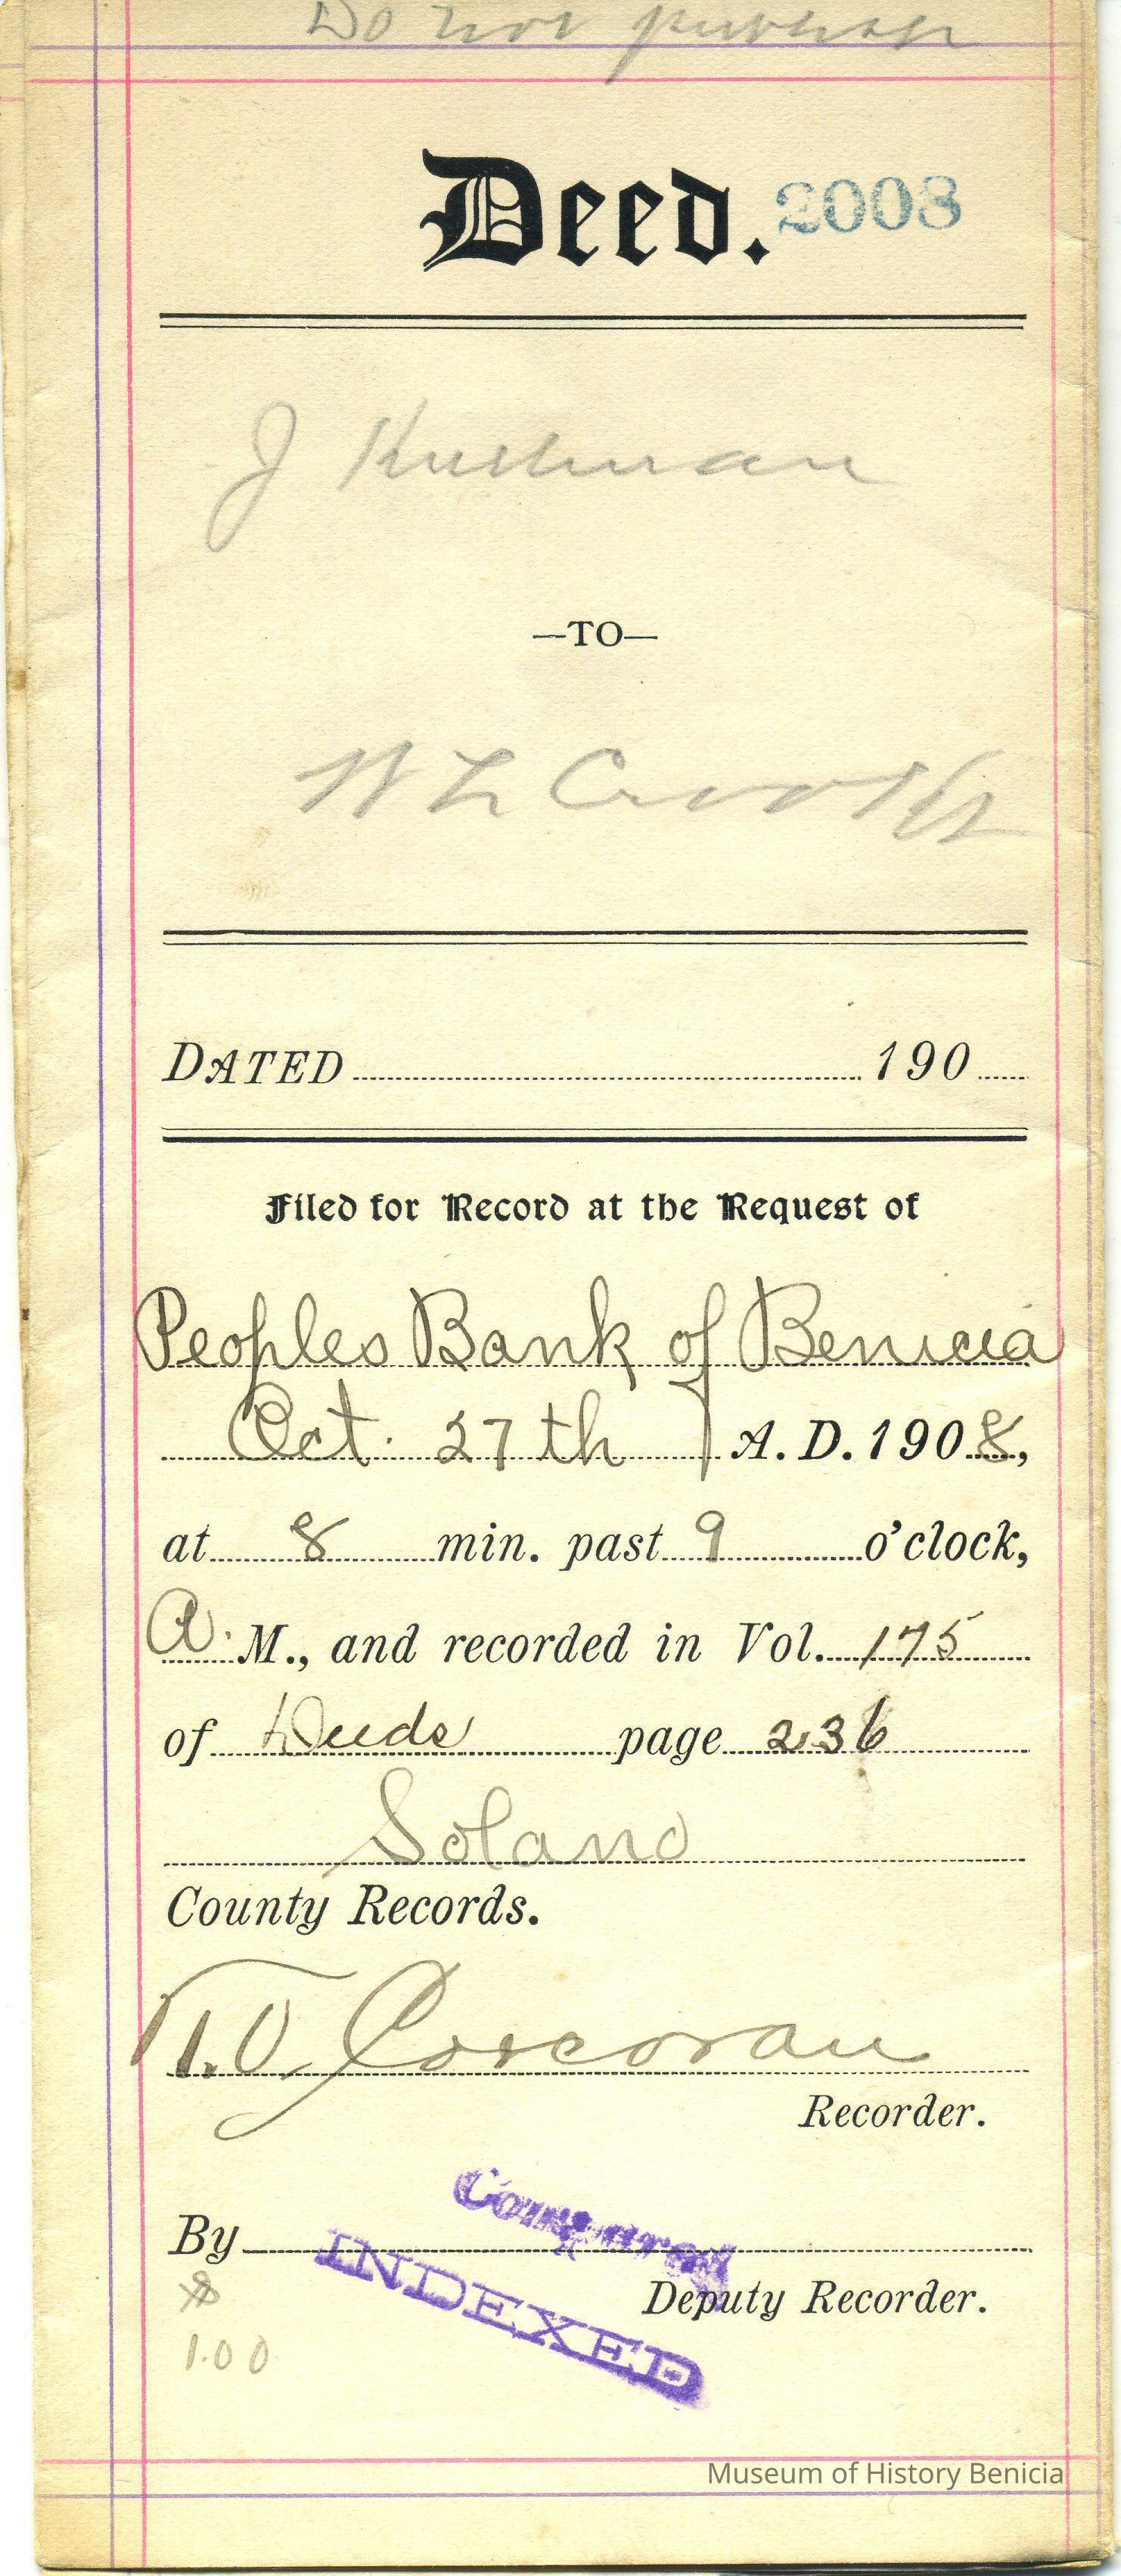 Do not publish
Deed. 2008
J Kuhlman
—TO—
W L Crooks
DATED 190
Filed for Record at the Request of
Peoples Bank of Benicia
Oct. 27th A. D. 1908,
at 8 min. past 9 o'clock,
A. M., and recorded in Vol. 175
of Deeds page 236
Solano
County Records.
Corcoran
Recorder.
Compared
By
INDEXED
Deputy Recorder.
1.00
Museum of History Benicia